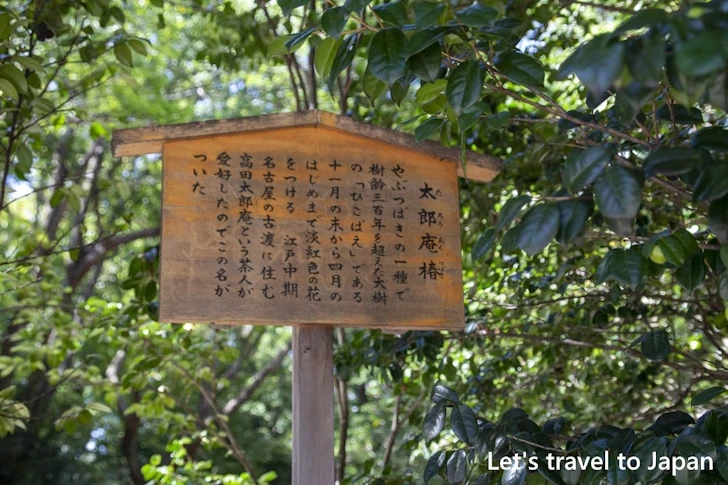 太郎庵椿
やぶつばきの一種で
樹齢三百年を超えた大樹
の「ひこばえ」である
十一月の末から四月の
はじめまで淡紅色の花
をつける　江戸中期
名古屋の古渡に住む
高田太郎庵という茶人が
愛好したのでこの名が
ついた
Let's travel to Japan